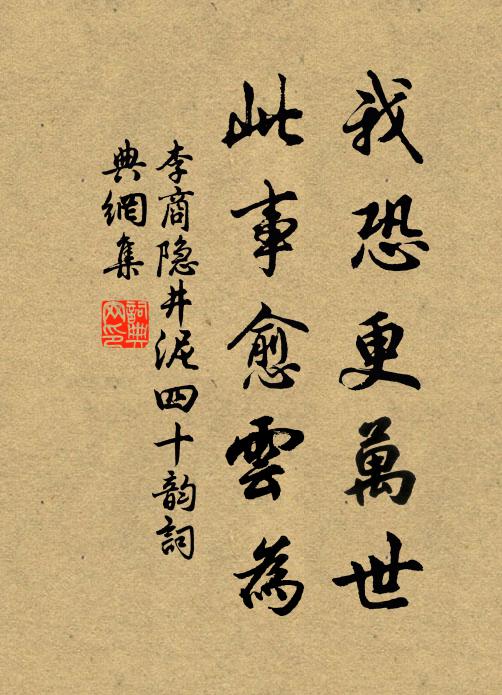 我恐更萬世
此事愈雲為
李商隐井泥四十韵詞
典網集
詞典網印